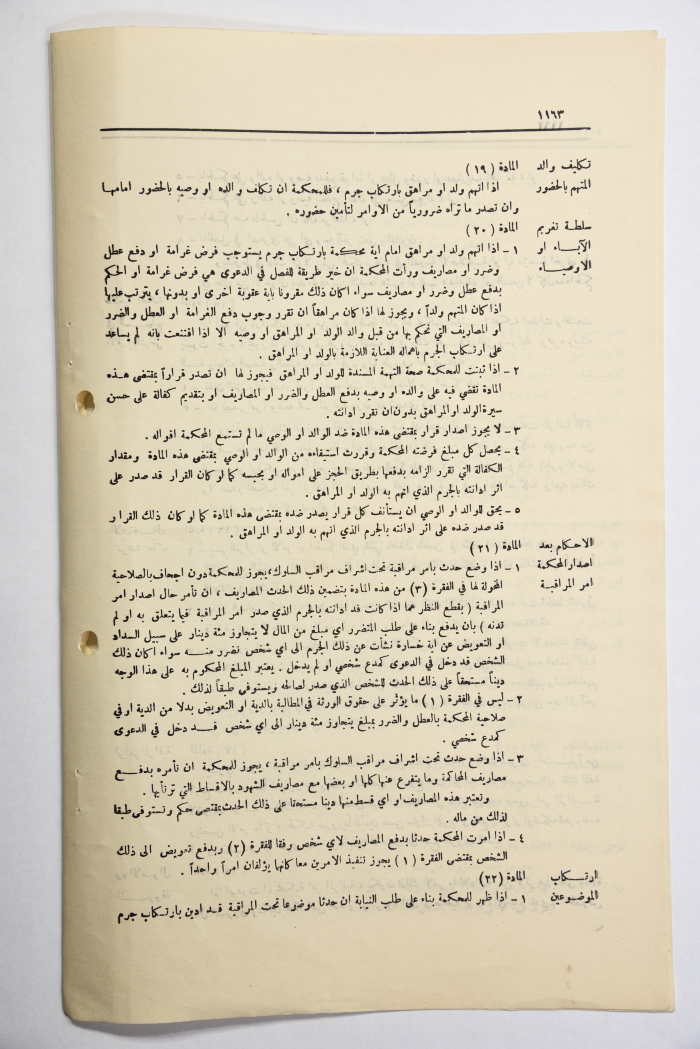 ١١٦٣
تكليف والد المتهم بالحضور
المادة ( ١٩ )
اذا اتهم ولد او مراهق بارتكاب جرم ، فللمحكمة ان تكلف والده او وصيه بالحضور امامها
وان تصدر ما تراه ضرورياً من الاوامر لتأمين حضوره .
سلطة تغريم الآباء او الاوصياء
المادة ( ٢٠ )
١ – اذا اتهم ولد او مراهق امام اية محكمة بارتكاب جرم يستوجب فرض غرامة او دفع عطل
وضرر او مصاريف ورأت المحكمة ان خير طريقة للفصل في الدعوى هي فرض غرامة او الحكم
بدفع عطل وضرر او مصاريف سواء اكان ذلك مقرونا باية عقوبة اخرى او بدونها ، يترتب عليها
اذا كان المتهم ولداً ، ويجوز لها اذا كان مراهقاً ان تقرر وجوب دفع الغرامة او العطل والضرر
او المصاريف التي تحكم بها من قبل والد الولد او المراهق او وصيه الا اذا اقتنعت بانه لم يساعد
على ارتكاب الجرم باهماله العناية اللازمة بالولد او المراهق .
٢ – اذا ثبتت للمحكمة صحة التهمة المسندة للولد او المراهق فيجوز لها ان تصدر قراراً بمقتضى هذه
المادة تقضي فيه على والده او وصيه بدفع العطل والضرر او المصاريف او بتقديم كفالة على حسن
سيرة الولد او المراهق بدون ان تقرر ادانته .
٣ – لا يجوز اصدار قرار بمقتضى هذه المادة ضد الوالد او الوصي ما لم تستمع المحكمة اقواله .
٤ – يحصل كل مبلغ فرضته المحكمة وقررت استيفاءه من الوالد او الوصي بمقتضى هذه المادة ومقدار
الكفالة التي تقرر الزامه بدفعها بطريق الحجز على امواله او بحبسه كما لو كان القرار قد صدر على
اثر ادانته بالجرم الذي اتهم به الولد او المراهق .
٥ – يحق للوالد او الوصي ان يستأنف كل قرار يصدر ضده بمقتضى هذه المادة كما لو كان ذلك القرار
قد صدر ضده على اثر ادانته بالجرم الذي اتهم به الولد او المراهق .
الاحكام بعد اصدار المحكمة امر المراقبة
المادة ( ٢١ )
١ – اذا وضع حدث بامر مراقبة تحت اشراف مراقب السلوك، يجوز للمحكمة دون اجحاف بالصلاحية
المخولة لها في الفقرة (٣) من هذه المادة بتضمين ذلك الحدث المصاريف ، ان تأمر حال اصدار امر
المراقبة ( بقطع النظر عما اذا كانت قد ادانته بالجرم الذي صدر امر المراقبة فيما يتعلق به او لم
تدنه ) بان يدفع بناء على طلب المتضرر اي مبلغ من المال لا يتجاوز مئة دينار على سبيل السداد
او التعويض عن اية خسارة نشأت عن ذلك الجرم الى اي شخص تضرر منه سواء اكان ذلك
الشخص قد دخل في الدعوى كمدع شخصي او لم يدخل . يعتبر المبلغ المحكوم به على هذا الوجه
ديناً مستحقاً على ذلك الحدث للشخص الذي صدر لصالحه ويستوفى طبقاً لذلك .
٢ – ليس في الفقرة ( ١ ) ما يؤثر على حقوق الورثة في المطالبة بالدية او التعويض بدلا من الدية او في
صلاحية المحكمة بالعطل والضرر بمبلغ يتجاوز مئة دينار الى اي شخص قد دخل في الدعوى
كمدع شخصي .
٣ – اذا وضع حدث تحت اشراف مراقب السلوك بامر مراقبة ، يجوز للمحكمة ان تأمره بدفع
مصاريف المحاكمة وما يتفرع عنها كلها او بعضها مع مصاريف الشهود بالاقساط التي ترتأيها .
وتعتبر هذه المصاريف او اي قسط منها دينا مستحقا على ذلك الحدث بمقتضى حكم وتستوفى طبقا
لذلك من ماله .
٤ – اذا امرت المحكمة حدثا بدفع المصاريف لاي شخص وفقا للفقرة (٢) وبدفع تعويض الى ذلك
الشخص بمقتضى الفقرة ( ١ ) يجوز تنفيذ الامرين معا كانها يؤلفان امراً واحداً .
ارتكاب الموضوعين
المادة (٢٢)
١ – اذا ظهر للمحكمة بناء على طلب النيابة ان حدثا موضوعا تحت المراقبة قد ادين بارتكاب جرم